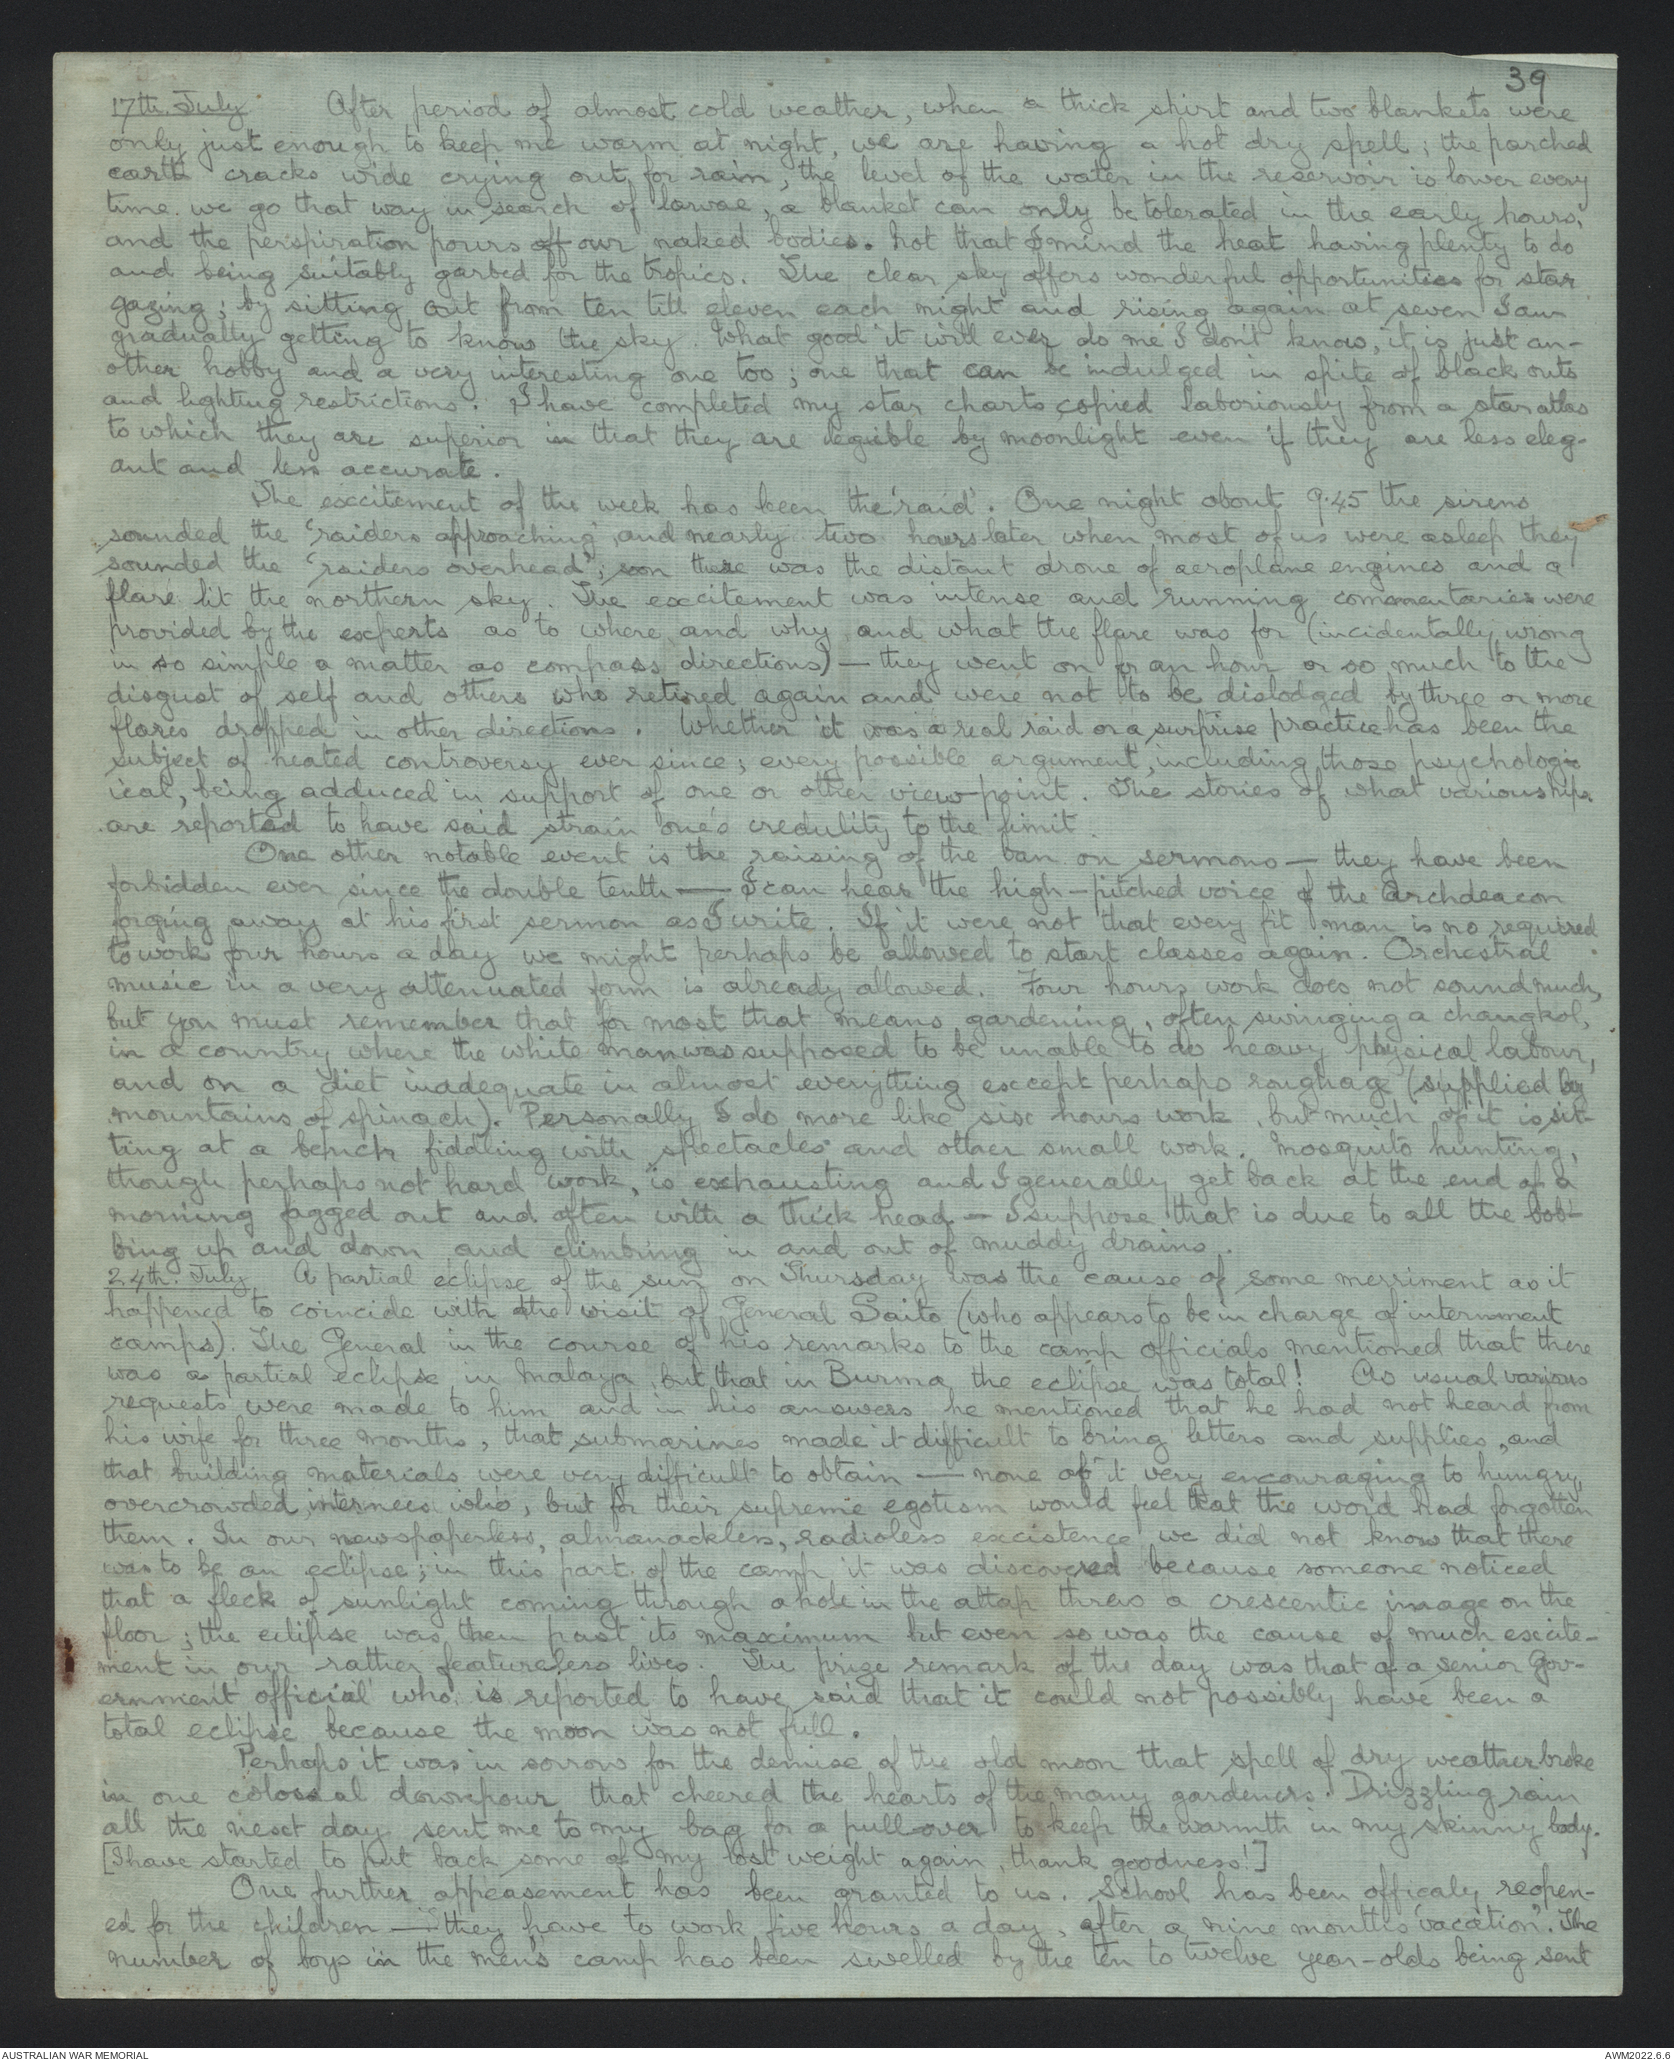 39
17th. July. After period of almost cold weather, when a thick shirt and two blankets were
only just enough to keep me warm at night, we are having a hot dry spell; the parched
earth cracks wide crying out for rain, the level of the water in the reservoir is lower every
time we go that way in search of larvae, a blanket can only be tolerated in the early hours,
and the perspiration pours off our naked bodies. Not that I mind the heat having plenty to do
and being suitably garbed for the tropics. The clear sky offers wonderful opportunities for star
gazing; by sitting out from ten till eleven each night and rising again at seven I am
gradually getting to know the sky. What good it will ever do me I don't know, it is just an-
other hobby and a very interesting one too; one that can be indulged in spite of black outs
and lighting restrictions. I have completed my star charts copied laboriously from a star atlas
to which they are superior in that they are legible by moonlight even if they are less eleg-
ant and less accurate.
The excitement of the week has been the 'raid'. One night about 9.45 the sirens
sounded the 'raiders approaching', and nearly two hours later when most of us were asleep they
sounded the 'raiders overhead'; soon there was the distant drone of aeroplane engines and a
flare lit the northern sky. The excitement was intense and running commentaries were
provided by the experts as to where and why and what the flare was for (incidentally wrong
in so simple a matter as compass directions) — they went on for an hour or so much to the
disgust of self and others who retired again and were not to be dislodged by three or more
flares dropped in other directions. Whether it was a real raid or a surprise practice has been the
subject of heated controversy ever since; every possible argument, including those psycholog-
ical, being adduced in support of one or other view-point. The stories of what various nips
are reported to have said strain one's credulity to the limit.
One other notable event is the raising of the ban on sermons — they have been
forbidden ever since the double tenth — I can hear the high-pitched voice of the Archdeacon
forging away at his first sermon as I write. If it were not that every fit man is no required
to work four hours a day we might perhaps be allowed to start classes again. Orchestral
music in a very attenuated form is already allowed. Four hours work does not sound much,
but you must remember that for most that means gardening, often swinging a changkol,
in a country where the white man was supposed to be unable to do heavy physical labour,
and on a diet inadequate in almost everything except perhaps roughage (supplied by
mountains of spinach). Personally I do more like six hours work, but much of it is sit-
ting at a bench fiddling with spectacles and other small work. Mosquito hunting,
though perhaps not hard work, is exhausting and I generally get back at the end of a
morning fagged out and often with a thick head — I suppose that is due to all the bob-
bing up and down and climbing in and out of muddy drains.
24th. July. A partial eclipse of the sun on Thursday was the cause of some merriment as it
happened to coincide with the visit of General Saito (who appears to be in charge of internment
camps). The General in the course of his remarks to the camp officials mentioned that there
was a partial eclipse in Malaya, but that in Burma the eclipse was total! As usual various
requests were made to him and in his answers he mentioned that he had not heard from
his wife for three months, that submarines made it difficult to bring letters and supplies, and
that building materials were very difficult to obtain — none of it very encouraging to hungry,
overcrowded, internees who, but for their supreme egotism would feel that the word had forgotten
them. In our newspaperless, almanackless, radioless existence we did not know that there
was to be an eclipse; in this part of the camp it was discovered because someone noticed
that a fleck of sunlight coming through a hole in the attap threw a crescentic image on the
floor; the eclipse was then past its maximum but even so was the cause of much excite-
ment in our rather featureless lives. The prize remark of the day was that of a senior Gov-
ernment official who is reported to have said that it could not possibly have been a
total eclipse because the moon was not full.
Perhaps it was in sorrow for the demise of the old moon that spell of dry weather broke
in one colossal downpour that cheered the hearts of the many gardeners. Drizzling rain
all the next day sent me to my bag for a pullover to keep the warmth in my skinny body.
[I have started to put back some of my lost weight again, thank goodness!]
One further appeasement has been granted to us. School has been officaly reopen-
ed for the children — they have to work five hours a day, after a nine months "vacation". The
number of boys in the men's camp has been swelled by the ten to twelve year-olds being sent
AUSTRALIAN WAR MEMORIAL
AWM2022.6.6